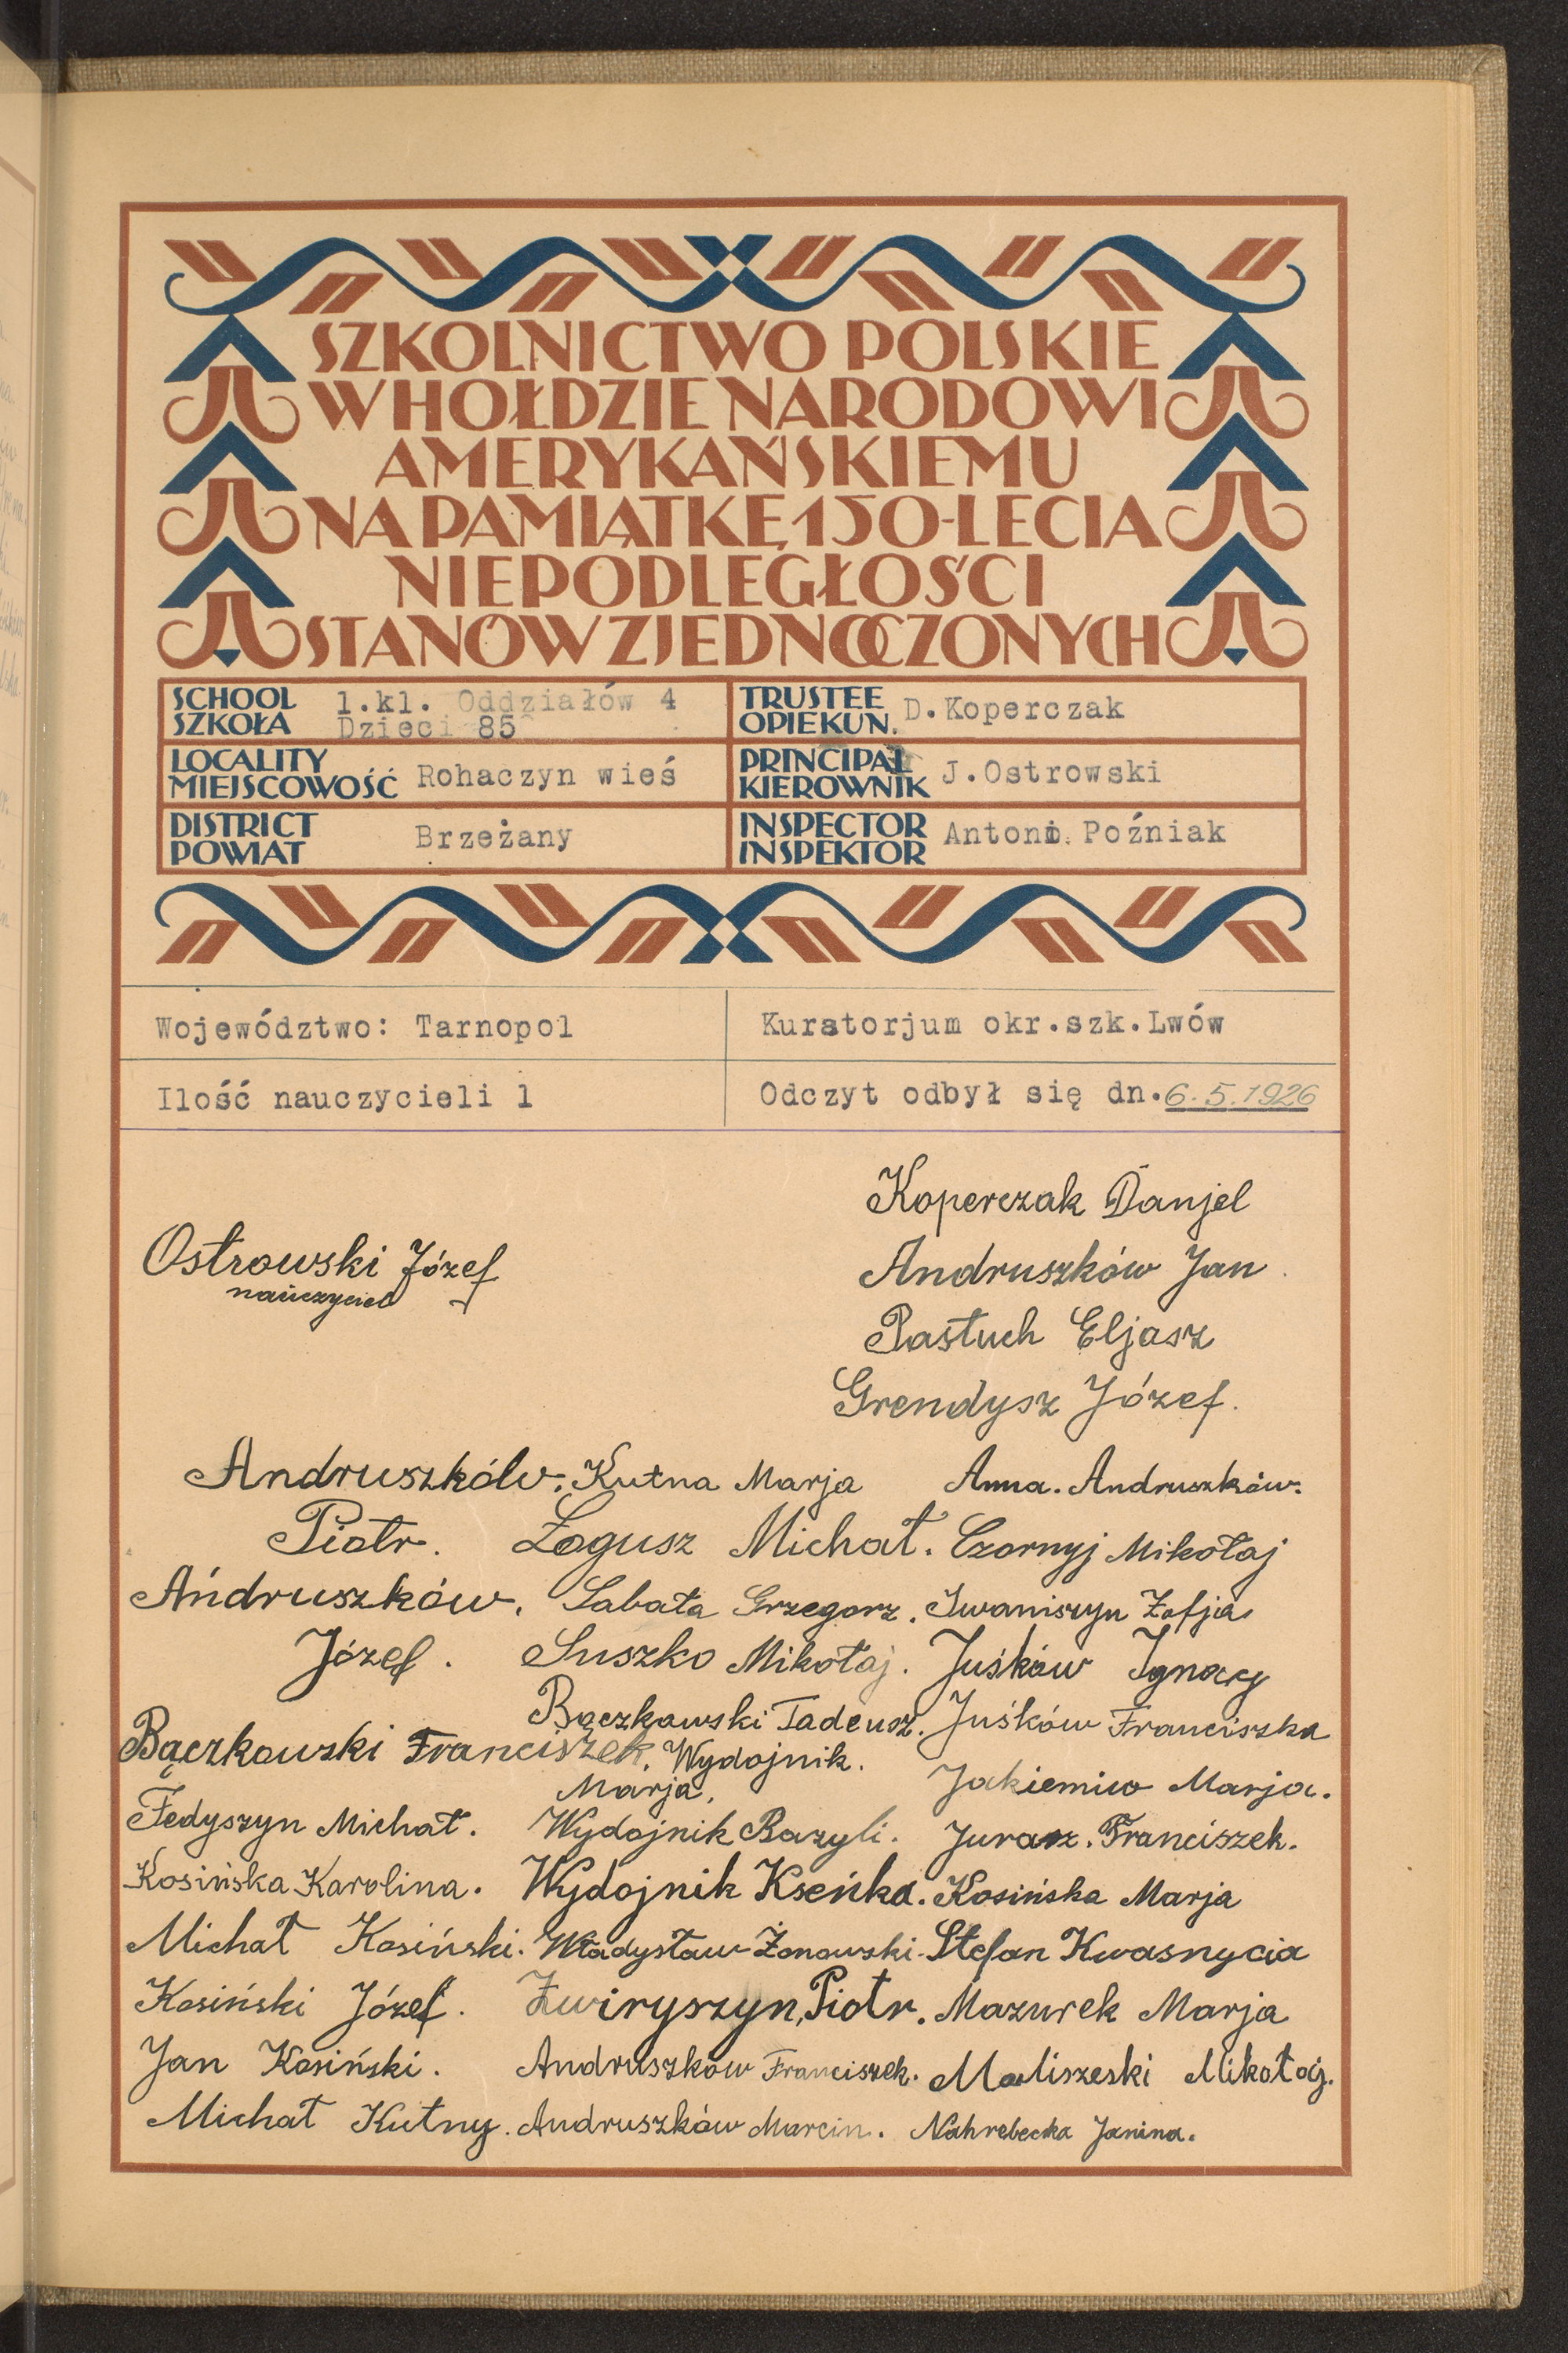 SZKOLNICTWO POLSKIE
W HOŁDZIE NARODOWI
AMERYKAŃSKIEMU
NA PAMIĄTKĘ 150-LECIA
NIEPODLEGŁOŚCI
STANÓW ZJEDNOCZONYCH
SCHOOL
SZKOŁA
1.kl. Oddziałów 4
Dzieci 85
TRUSTEE
OPIEKUN.
D.Koperczak
LOCALITY
MIEJSCOWOŚĆ
Rohaczyn wieś
PRINCIPAL
KIEROWNIK
J.Ostrowski
DISTRICT
POWIAT
Brzeżany
INSPECTOR
INSPEKTOR
Antoni Poźniak
Województwo: Tarnopol
Kuratorjum okr.szk.Lwów
Ilość nauczycieli 1
Odczyt odbył się dn. 6.5.1926
Koperczak Danjel
Ostrowski Józef
nauczyciel
Andruszków Jan
Pastuch Eljasz
Grendysz Józef.
Andruszków. Kutna Marja Anna. Andruszków.
Piotr. Łogusz Michał. Czornyj Mikołaj
Andruszków. Sabata Grzegorz. Iwaniszyn Zofja
Józef. Suszko Mikołaj. Juśków Ignacy
Bączkowski Tadeusz. Juśków Franciszka
Bączkowski Franciszek. Wydojnik.
Marja. Jakiemiw Marja.
Fedyszyn Michał. Wydojnik Bazyli. Jurasz. Franciszek.
Kosińska Karolina. Wydojnik Kseńka. Kosińska Marja
Michał Kosiński. Władysław Żonowski. Stefan Kwasnycia
Kosiński Józef. Żwiryszyn, Piotr. Mazurek Marja
Jan Kosiński. Andruszków Franciszek. Maliszeski Mikołaj.
Michał Kutny. Andruszków Marcin. Nahrebecka Janina.